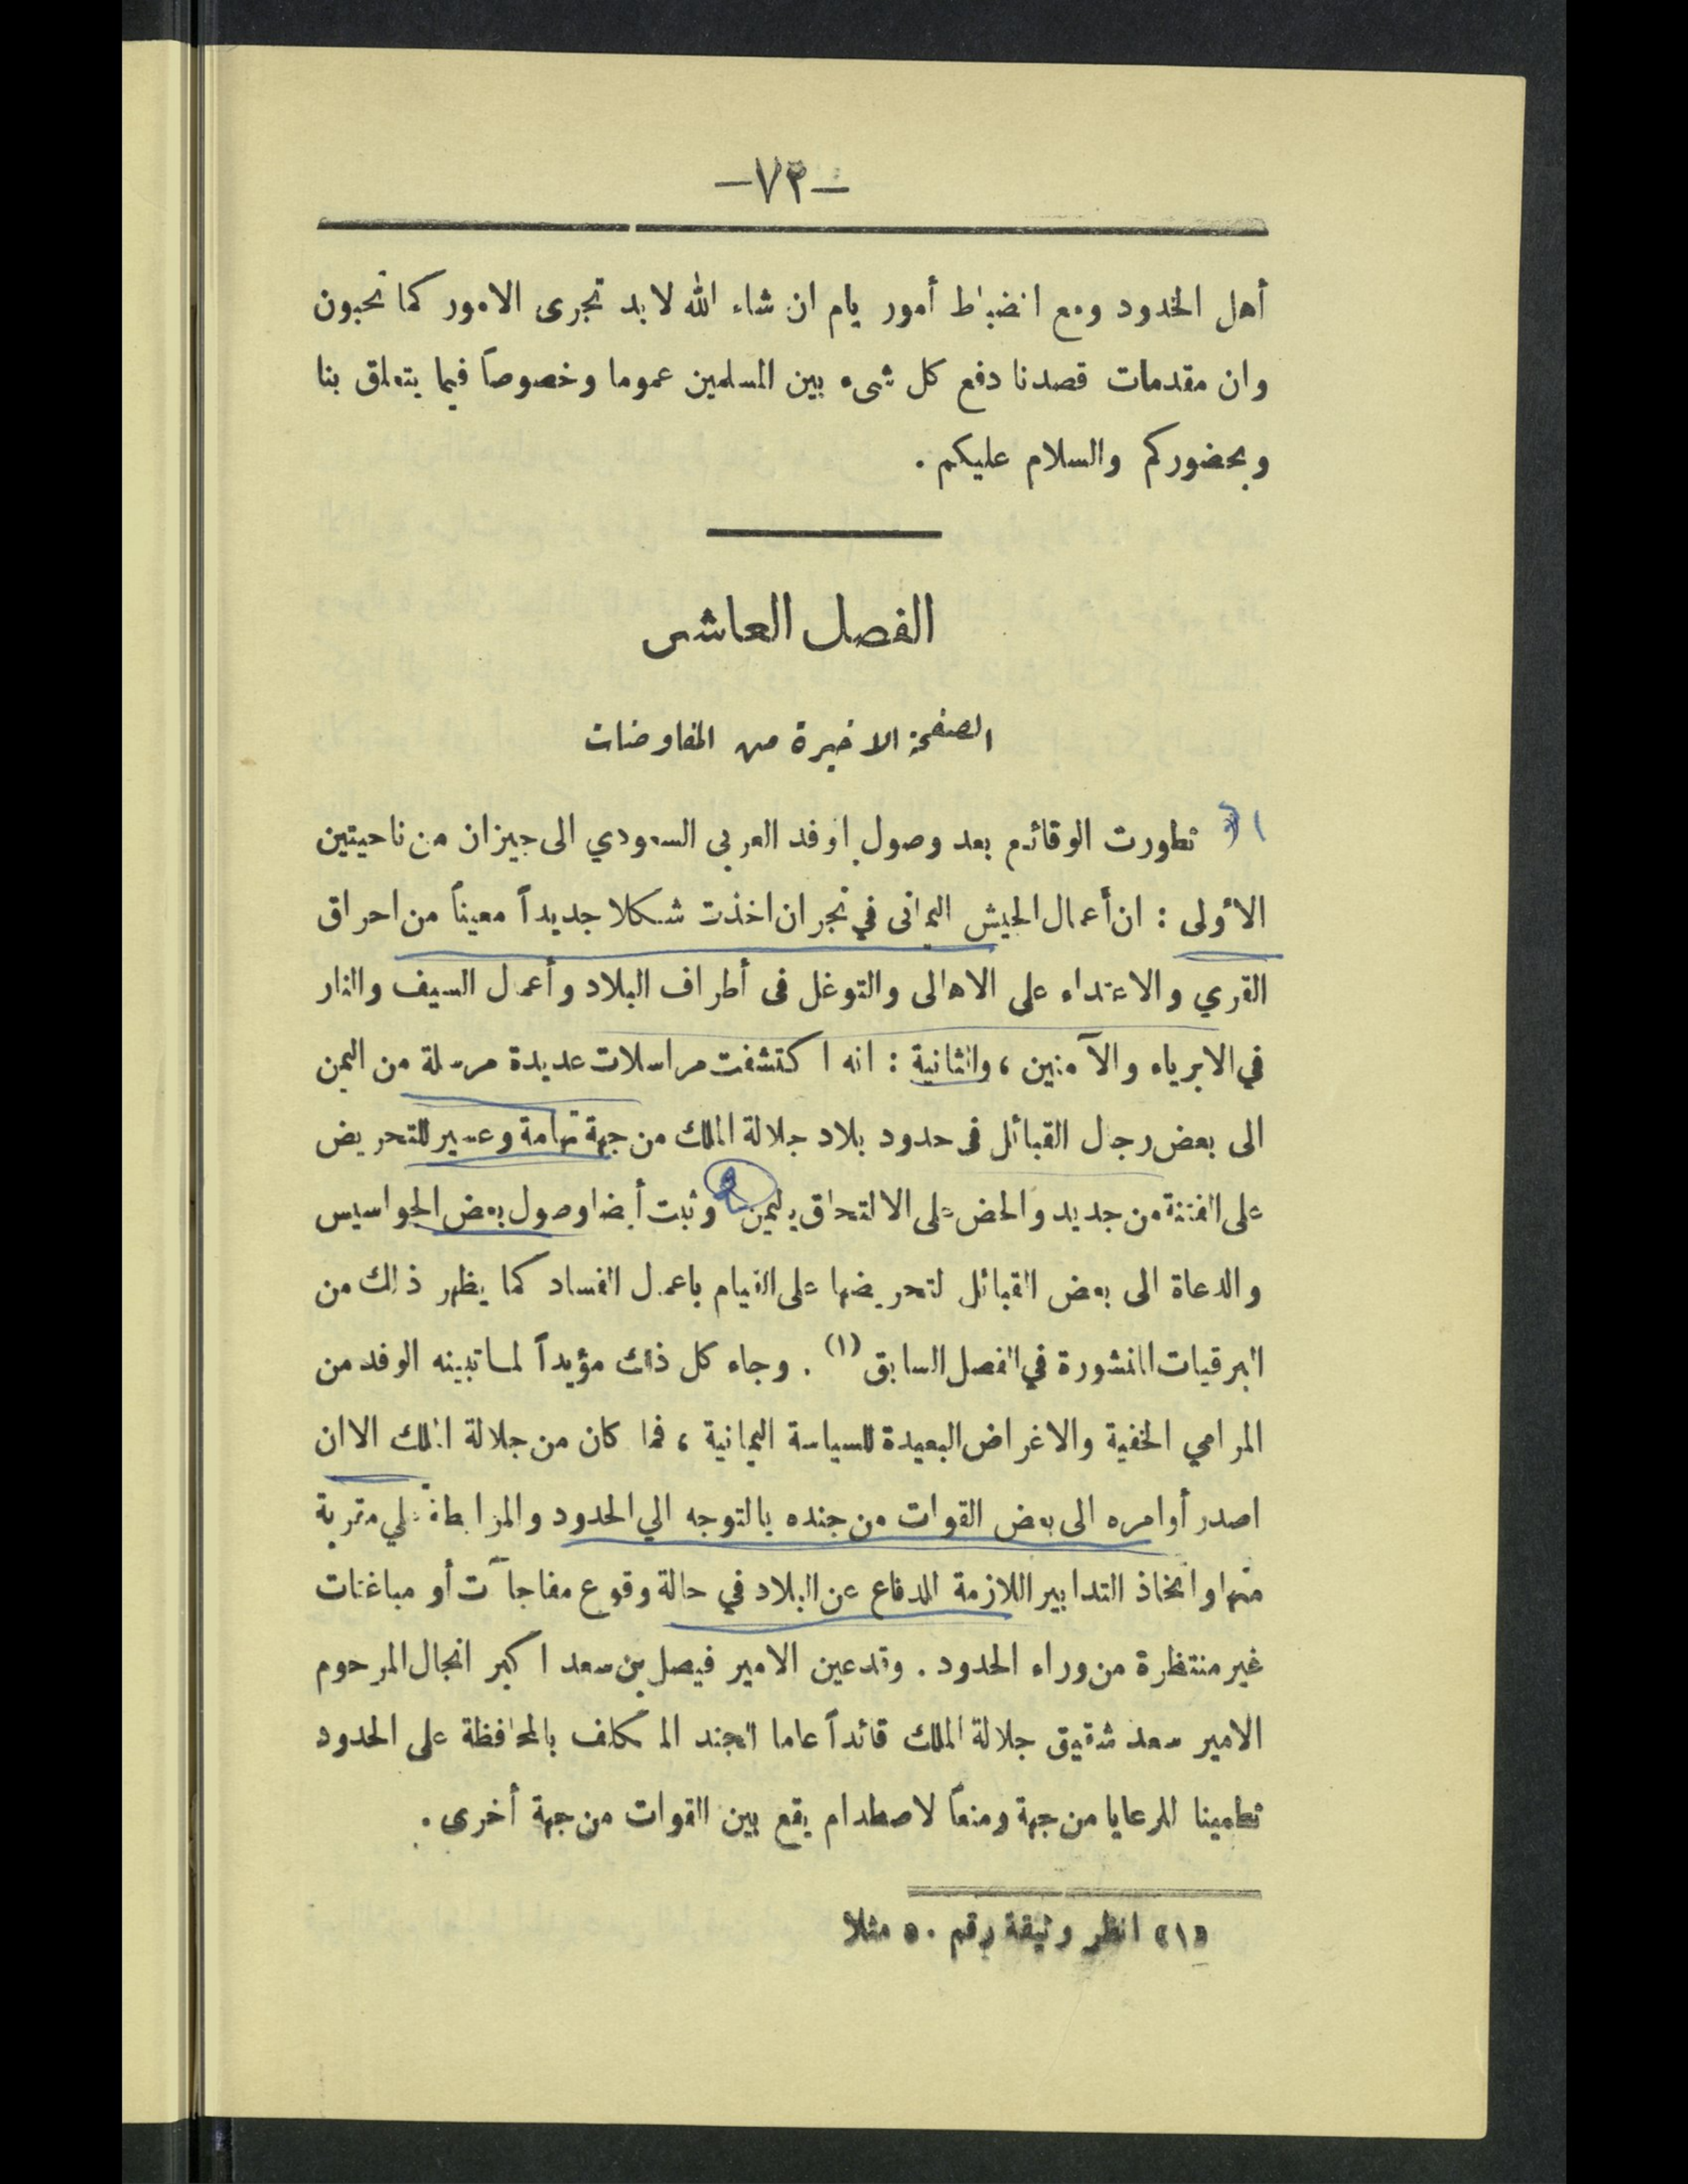 —٧٣—
أهل الخدود ومع انضباط أمور يام ان شاء الله لا بد تجرى الامور كما تحبون
وان مقدمات قصدنا دفع كل شىء بين المسلمين عموما وخصوصاً فيما يتعلق بنا
وبحضوركم والسلام عليكم .
الفصل العاشر
الصفحة الاخيرة من المفاوضات
تطورت الوقائع بعد وصول الوفد العربى السعودي الى جيزان من ناحيتين
الأولى : ان أعمال الجيش اليمانى في نجران اخذت شكلا جديداً معيناً من احراق
القري والاعتداء على الاهالى والتوغل فى أطراف البلاد وأعمال السيف والنار
في الابرياء والآمنين ، والثانية : انه اكتشفت مراسلات عديدة مرسلة من اليمن
الى بعض رجال القبائل فى حدود بلاد جلالة الملك من جهة تهامة وعسير للتحريض
على الفتنة من جديد والحض على الالتحاق باليمن وثبت أيضا وصول بعض الجواسيس
والدعاة الى بعض القبائل لتحريضها على القيام باعمال الفساد كما يظهر ذلك من
البرقيات المنشورة في الفصل السابق (١) . وجاء كل ذلك مؤيداً لما تبينه الوفد من
المرامي الخفية والاغراض البعيدة للسياسة اليمانية ، فما كان من جلالة الملك الا ان
اصدر أوامره الى بعض القوات من جنده بالتوجه الي الحدود والمرابطة علي مقربة
منها واتخاذ التدابير اللازمة للدفاع عن البلاد في حالة وقوع مفاجآت أو مباغتات
غير منتظرة من وراء الحدود . وقد عين الامير فيصل بن سعد اكبر انجال المرحوم
الامير سعد شقيق جلالة الملك قائداً عاما للجند المكلف بالمحافظة على الحدود
تطمينا للرعايا من جهة ومنعاً لاصطدام يقع بين القوات من جهة أخرى .
«١» انظر وثيقة رقم ٥٠ مثلا